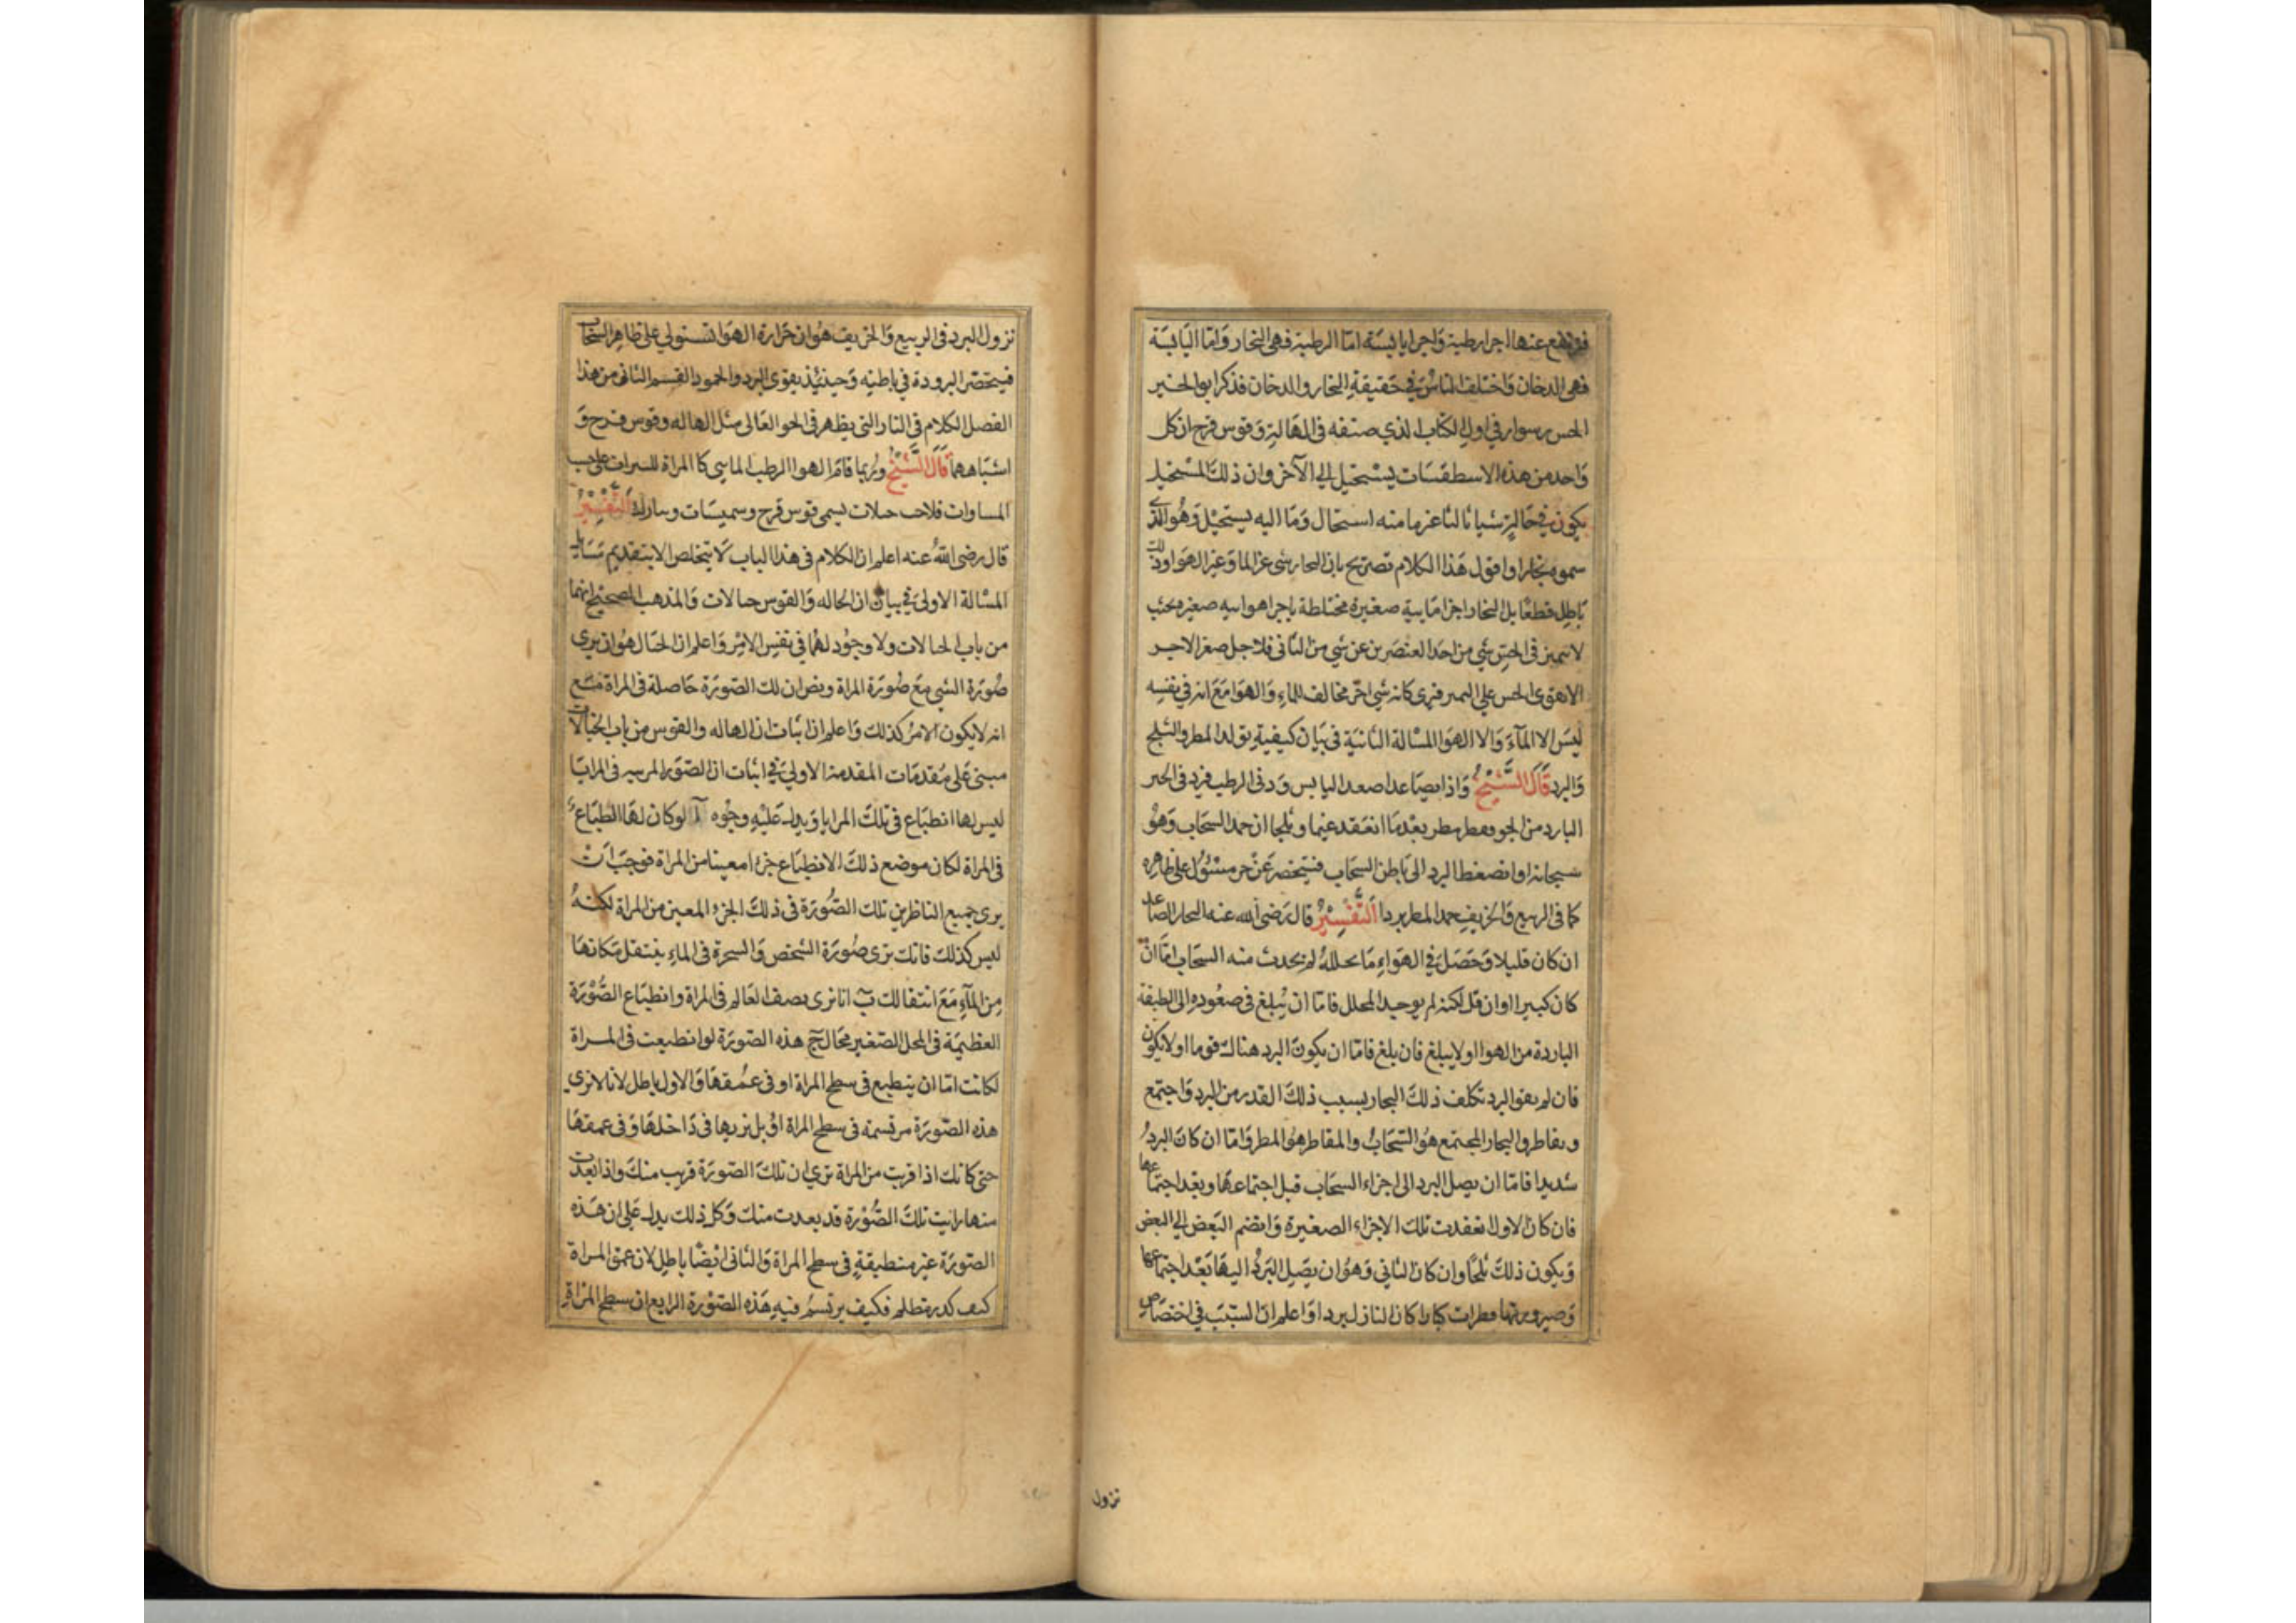 فيرتفع عنها اجزا رطبة وَاجزا يابسَة امّا الرطبة فهى البخار وَامّا اليَابسَة
فهى الدخان وَاختلف الناسُ فى حَقيقةِ البخار والدخان فذكر ابو الخير
الحسن بن سوار فى اول الكتاب الذى صنفه فى الهَالة وَقوس قزح ان كل
وَاحد من هذه الاسطقسَات يستحيل الى الآخر وان ذلكَ المستحيل
يكون فى حَالة شيا ثالثا غير ما منه استحال وَمَا اليه يستحيل وَهُو الذى
سموه بخارا واقول هَذا الكلام تصرَيح بان البخار شى غير الما وَغير الهوَا وذلك
بَاطِل قطعًا بل البخار اجزا مَايية صغيرة مختلطة باجزا هوايية صغيرة بحيث
لا يتميز فى الحسّ شي من احَد العنصَرين عن شي من الثانى فلاجل صغر الاجزا
لا يقوى الحس على التمييز فيرى كانه شي اخر مخالف للماءِ وَالهوَا مَعَ انه فى نفسِه
ليسَ الا المآءَ وَالا الهوَا المسْالة الثانيَة فى بيَان كيفيةِ تولد المطر والثلج
وَالبرد قَالَ الشَّيْخُ وَاذا تصَاعدا صعد اليابس وَرد فى الرطب فيرد فى الحيز
البارد من الجو فقطر مطر بعْدمَا انعَقد غيما وثلجا ان جمد السحَاب وَهوُ
سحابٌ او انضغط البرد الى بَاطن السحَاب فيتحصر عَنْ حر مسْتولٍ على ظاهره
كما فى الربيع وَالخريف جمد المطر بردا اَلتَّفْسِيْرُ قال رَضى الله عنه البخار الصَّاعد
ان كان قليلا وَحَصَل فى الهوَاءِ مَا يحلله لم يحدث منه السحَاب امّا انْ
كان كبيرا او ان قل لكنه لم يوجد المحلل فامّا ان يُبلغ فى صعُوده الى الطبقة
الباردة من الهوا او لا يبلغ فان بلغ فامّا ان يكون البرد هناك قويا او لا يكون
فان لم يقو البرد تكثف ذلكَ البخار بسبب ذلكَ القدر من البرد وَاجتمع
وتقاطر والبخار المجتمع هوُ السّحَابُ والمتقاطر هوُ المطر وَامّا ان كانَ البردُ
شديدا فامّا ان يصل البرد الى اجزاء السحَاب قبل اجتماعهَا او بعْد اجتماعها
فان كان الاول انعقدت تلكَ الاجزاء الصغيرة وَانضم البَعض الى البعض
وَيكون ذلكَ ثلجًا وان كانَ الثانى وَهوُ ان يصَل البَردُ اليهَا بَعْد اجتماعها
وَصيرورتها قطرات كبارا كان النازل بردا وَاعلم انّ السّبَبَ فى اختصَاص
نزول
نزول البرد فى الربيع وَالخريف هوُ ان حَرارة الهوَا تستولي على ظاهِر السحَاب
فيتحصّر البرودة فى باطنه وَحينئذ يقوَى البرد والجمود القسم الثانى من هذا
الفصل الكلام فى الاثار التى يظهر فى الجو العَالى مثل الهاله وقوس قزح وَ
اشبَاههما قَالَ الشَّيْخُ وربما قامَ الهوا الرطب الماسى كا المراة للنيرات على حسب
المساوات فلاحت خيالات يسمى قوس قزح وشميسَات ونيازك اَلتَّفْسِيْرُ
قال رضى اللهُ عنه اعلم ان الكلام فى هذا الباب لا يتخلص الا بتقديم مسَايل
المسْالة الاولى فى بيان ان الهاله وَالقوس خيالات وَالمذهب الصحيح انهما
من باب الخيالات ولا وجُود لهُما فى نفسِ الامْرِ وَاعلم ان الخيَال هوُ ان يرى
صُورَة الشي مَعَ صُورَة المراة ويظن ان تلك الصّورَة حَاصلة فى المراة مَعَ
انه لا يكون الامرُ كذلك وَاعلم ان اثبَات ان الهاله والقوس من باب الخيَالات
مبنى عَلى مُقدمَات المقدمة الاولى فى اثبات ان الصّوَر المرييه فى المرايَا
ليس لها انطبَاع فى تلكَ المرايا وَيدل عَليْهِ وجُوه آ لو كان لهَا انطبَاع
فى المراة لكان موضع ذلكَ الانطبَاع جزءا معينا من المراة فوجَبَ اَنْ
يرى جميع الناظرين تلك الصُّورَة فى ذلكَ الجزء المعين من المراة لكنهُ
ليس كذلك فانك ترى صُورَة الشخص وَالشجرة فى الماءِ ينتقل مَكانهَا
مِن المآءِ مَعَ انتقالك بَ انا نرى نصف العَالم فى المراة وانطبَاع الصُّوْرَة
العظيمَة فى المحل الصّغير محَال جَ هذه الصّورَة لو انطبعت فى المراة
لكانت امّا ان ينطبع فى سطح المراة او فى عمُقهَا وَالاول باطل لانا لا نرى
هذه الصّورَة مرتسمة فى سطح المراة اوْ بل نريها فى دَاخلهَا وَفى عمقهَا
حتى كانك اذا قربت من المراة ترى ان تلكَ الصّورَة قريب منكَ واذا بعدت
منها رايت تلكَ الصُّوْرة قد بعدت منك وَكل ذلك يدل عَلى ان هَذه
الصّورَة غير منطبقةٍ فى سطح المراة وَالثانى ايْضًا باطل لان عمق المراة
كثيف كدر مظلم فكيف يرتسمُ فيهِ هَذه الصّوْرة الرابع ان سطح المرْاة